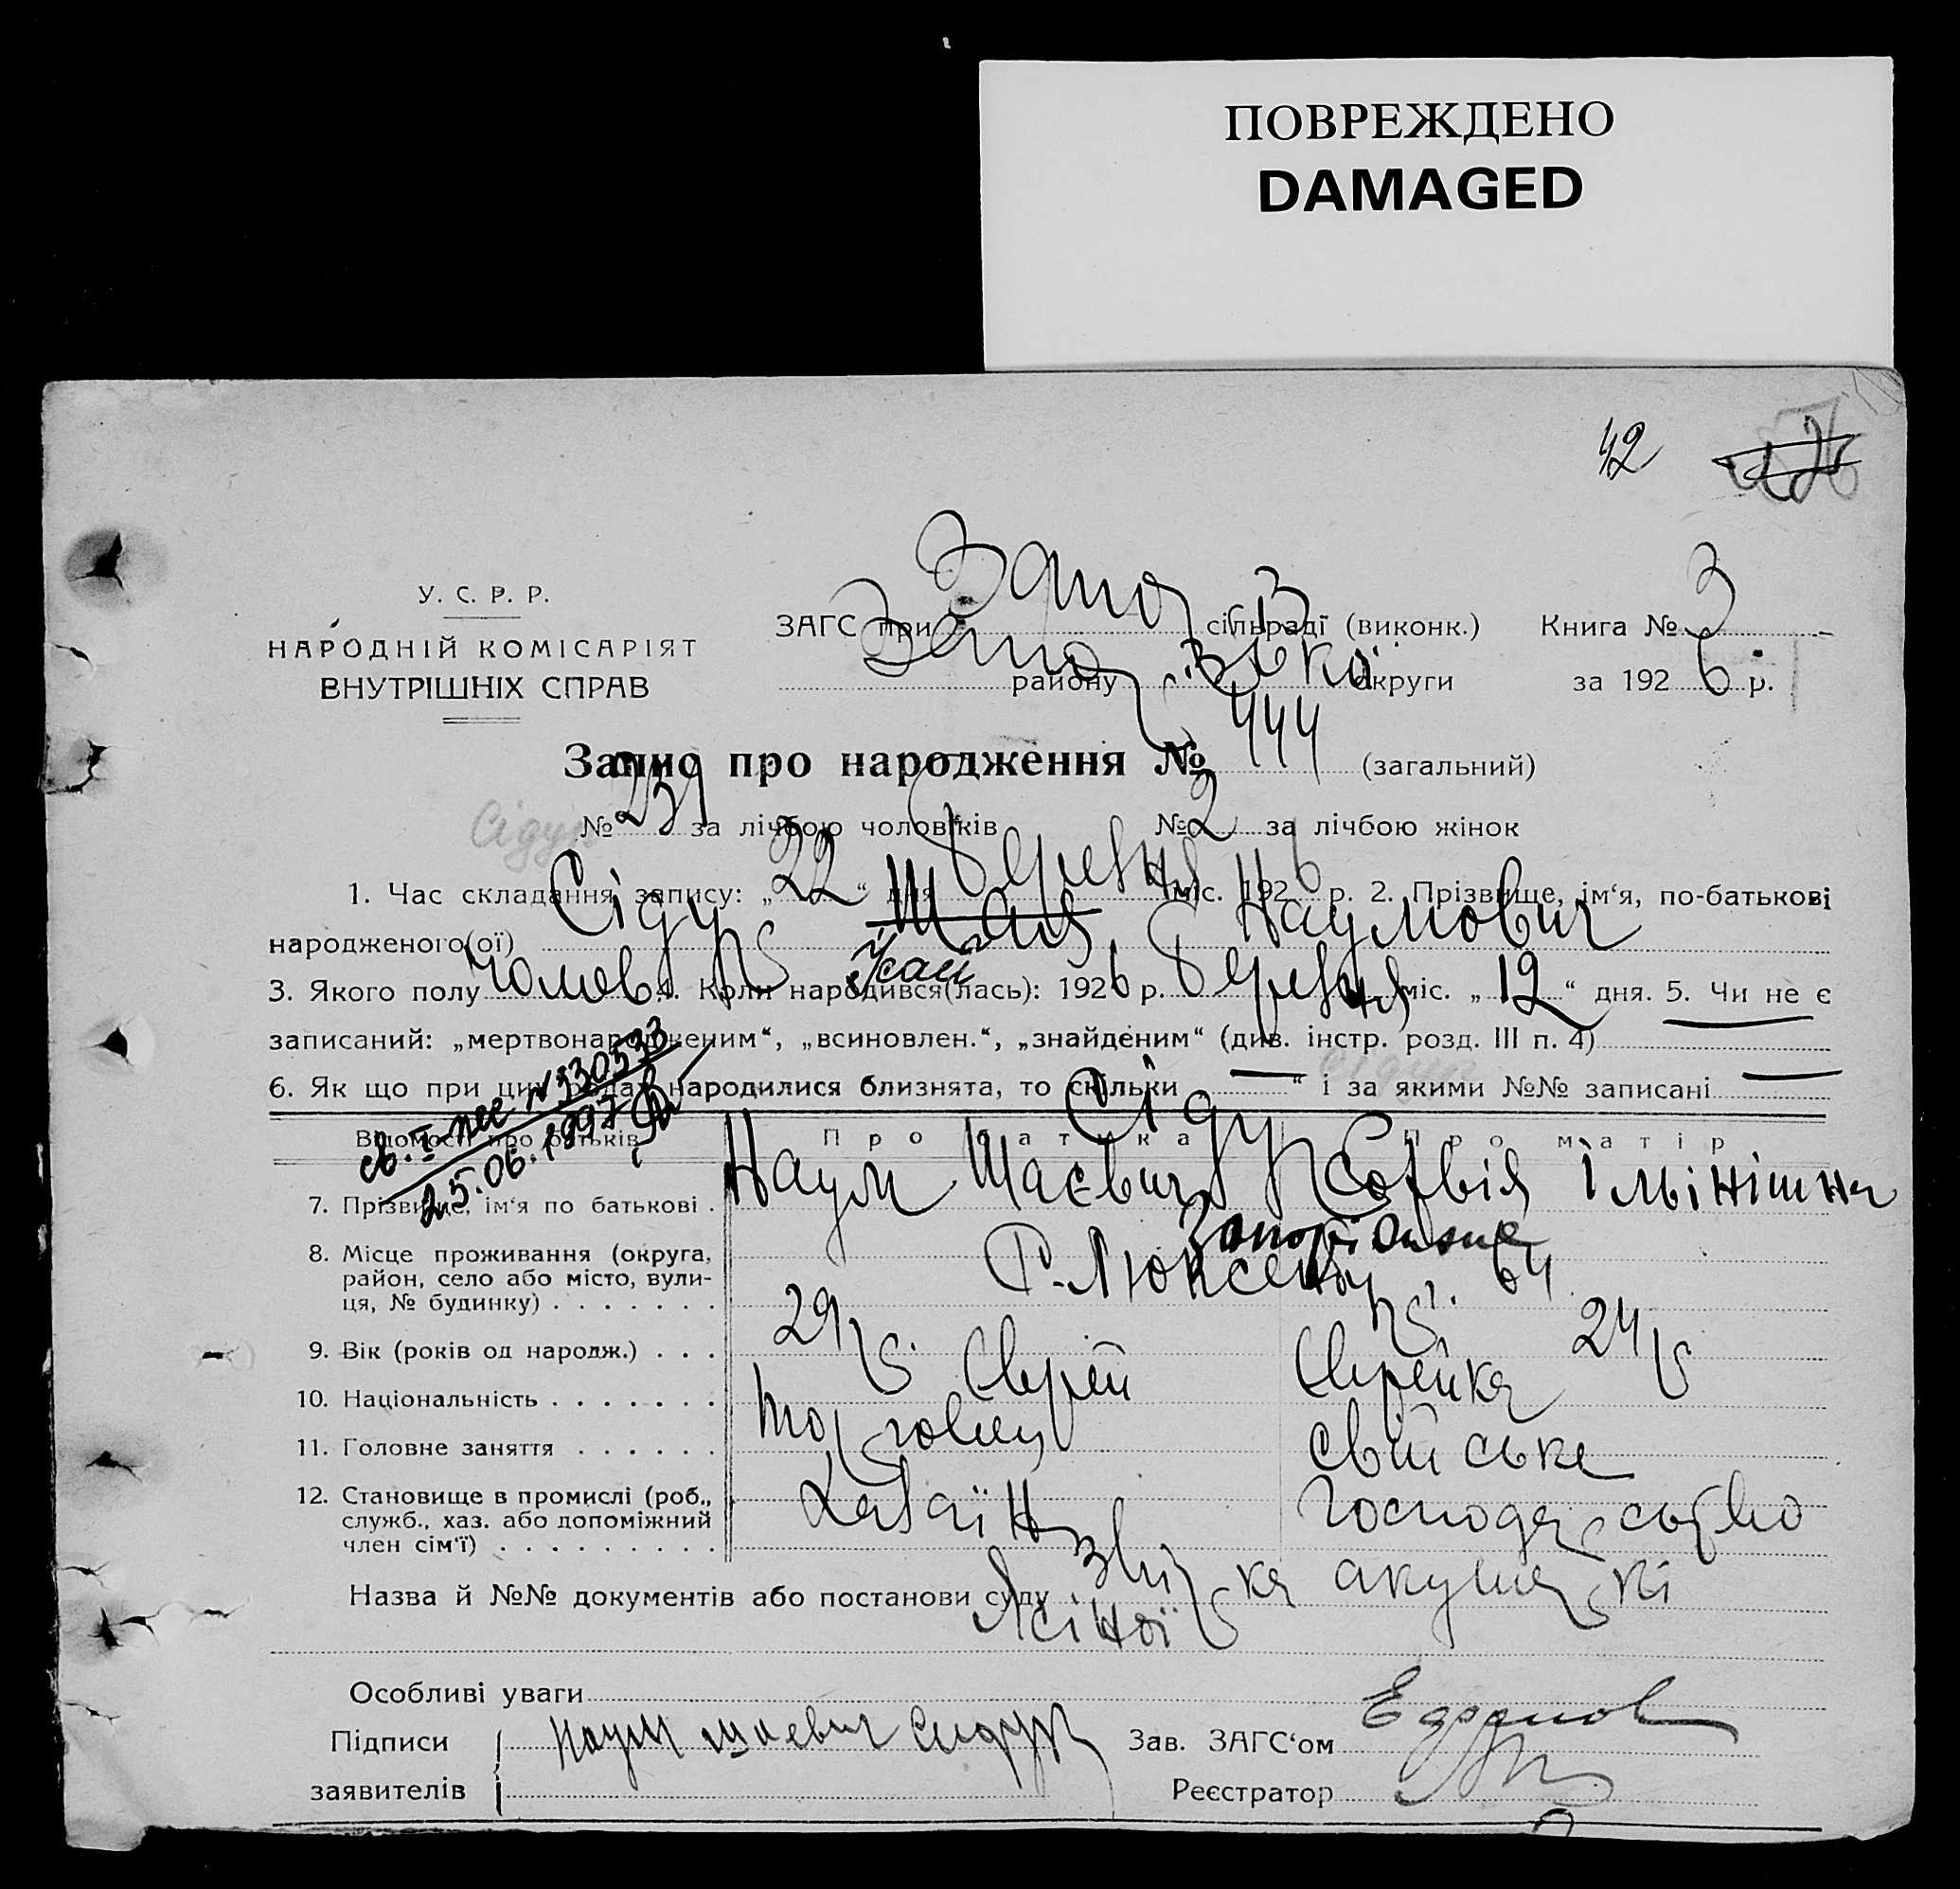 ПОВРЕЖДЕНО
DAMAGED
42
У. С. Р. Р.
НАРОДНІЙ КОМІСАРІЯТ
ВНУТРІШНІХ СПРАВ
ЗАГС при сільраді (виконк.) Книга № 3
району округи за 1926 р.
Запис про народження № 444 (загальний)
Сідур № 239 за лічбою чоловіків № 2 за лічбою жінок
1. Час складання запису: „22“ дня Березня міс. 1926 р. 2. Прізвище, ім‘я, по-батькові
народженого(ої) Сідур Шая Наумович
Ісай
3. Якого полу чолов. 4. Коли народився(лась): 1926 р. Березня міс. „12“ дня. 5. Чи не є
записаний: „мертвонародженим“, „всиновлен.“, „знайденим“ (див. інстр. розд. III п. 4)
6. Як що при цих родах народилися близнята, то скільки “ і за якими №№ записані
25.06.1997
Відомості про батьків Про батька Про матір
Сідур
7. Прізвище, ім‘я по батькові . Наум Шаєвич Софвія Ільінішна
8. Місце проживання (округа,
район, село або місто, вули-
ця, № будинку) . . . . . . . Запоріжже
Р. Люксембург. 64
9. Вік (років од народж.) . . . 29 р. 24 р
10. Національність . . . . . . . Єврей Єврейка
11. Головне заняття . . . . . . торговец свійське
12. Становище в промислі (роб.,
служб., хаз. або допоміжний
член сім‘ї) . . . . . . . . . Хазаїн господарство
Назва й №№ документів або постанови суду Звірка акушерки
Ясіної
Особливі уваги
Підписи
заявителів Наум шаевич Сидур
Зав. ЗАГС‘ом
Реєстратор